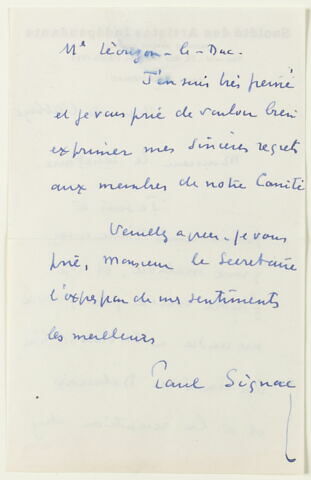 Mr Léouzon-le-Duc.
J'en suis très peiné
et je vous prie de vouloir bien
exprimer mes sincères regrets
aux membres de notre Comité
Veuillez agréer, je vous
prie, Monsieur le Secrétaire
l'expression de mes sentiments
les meilleurs
Paul Signac